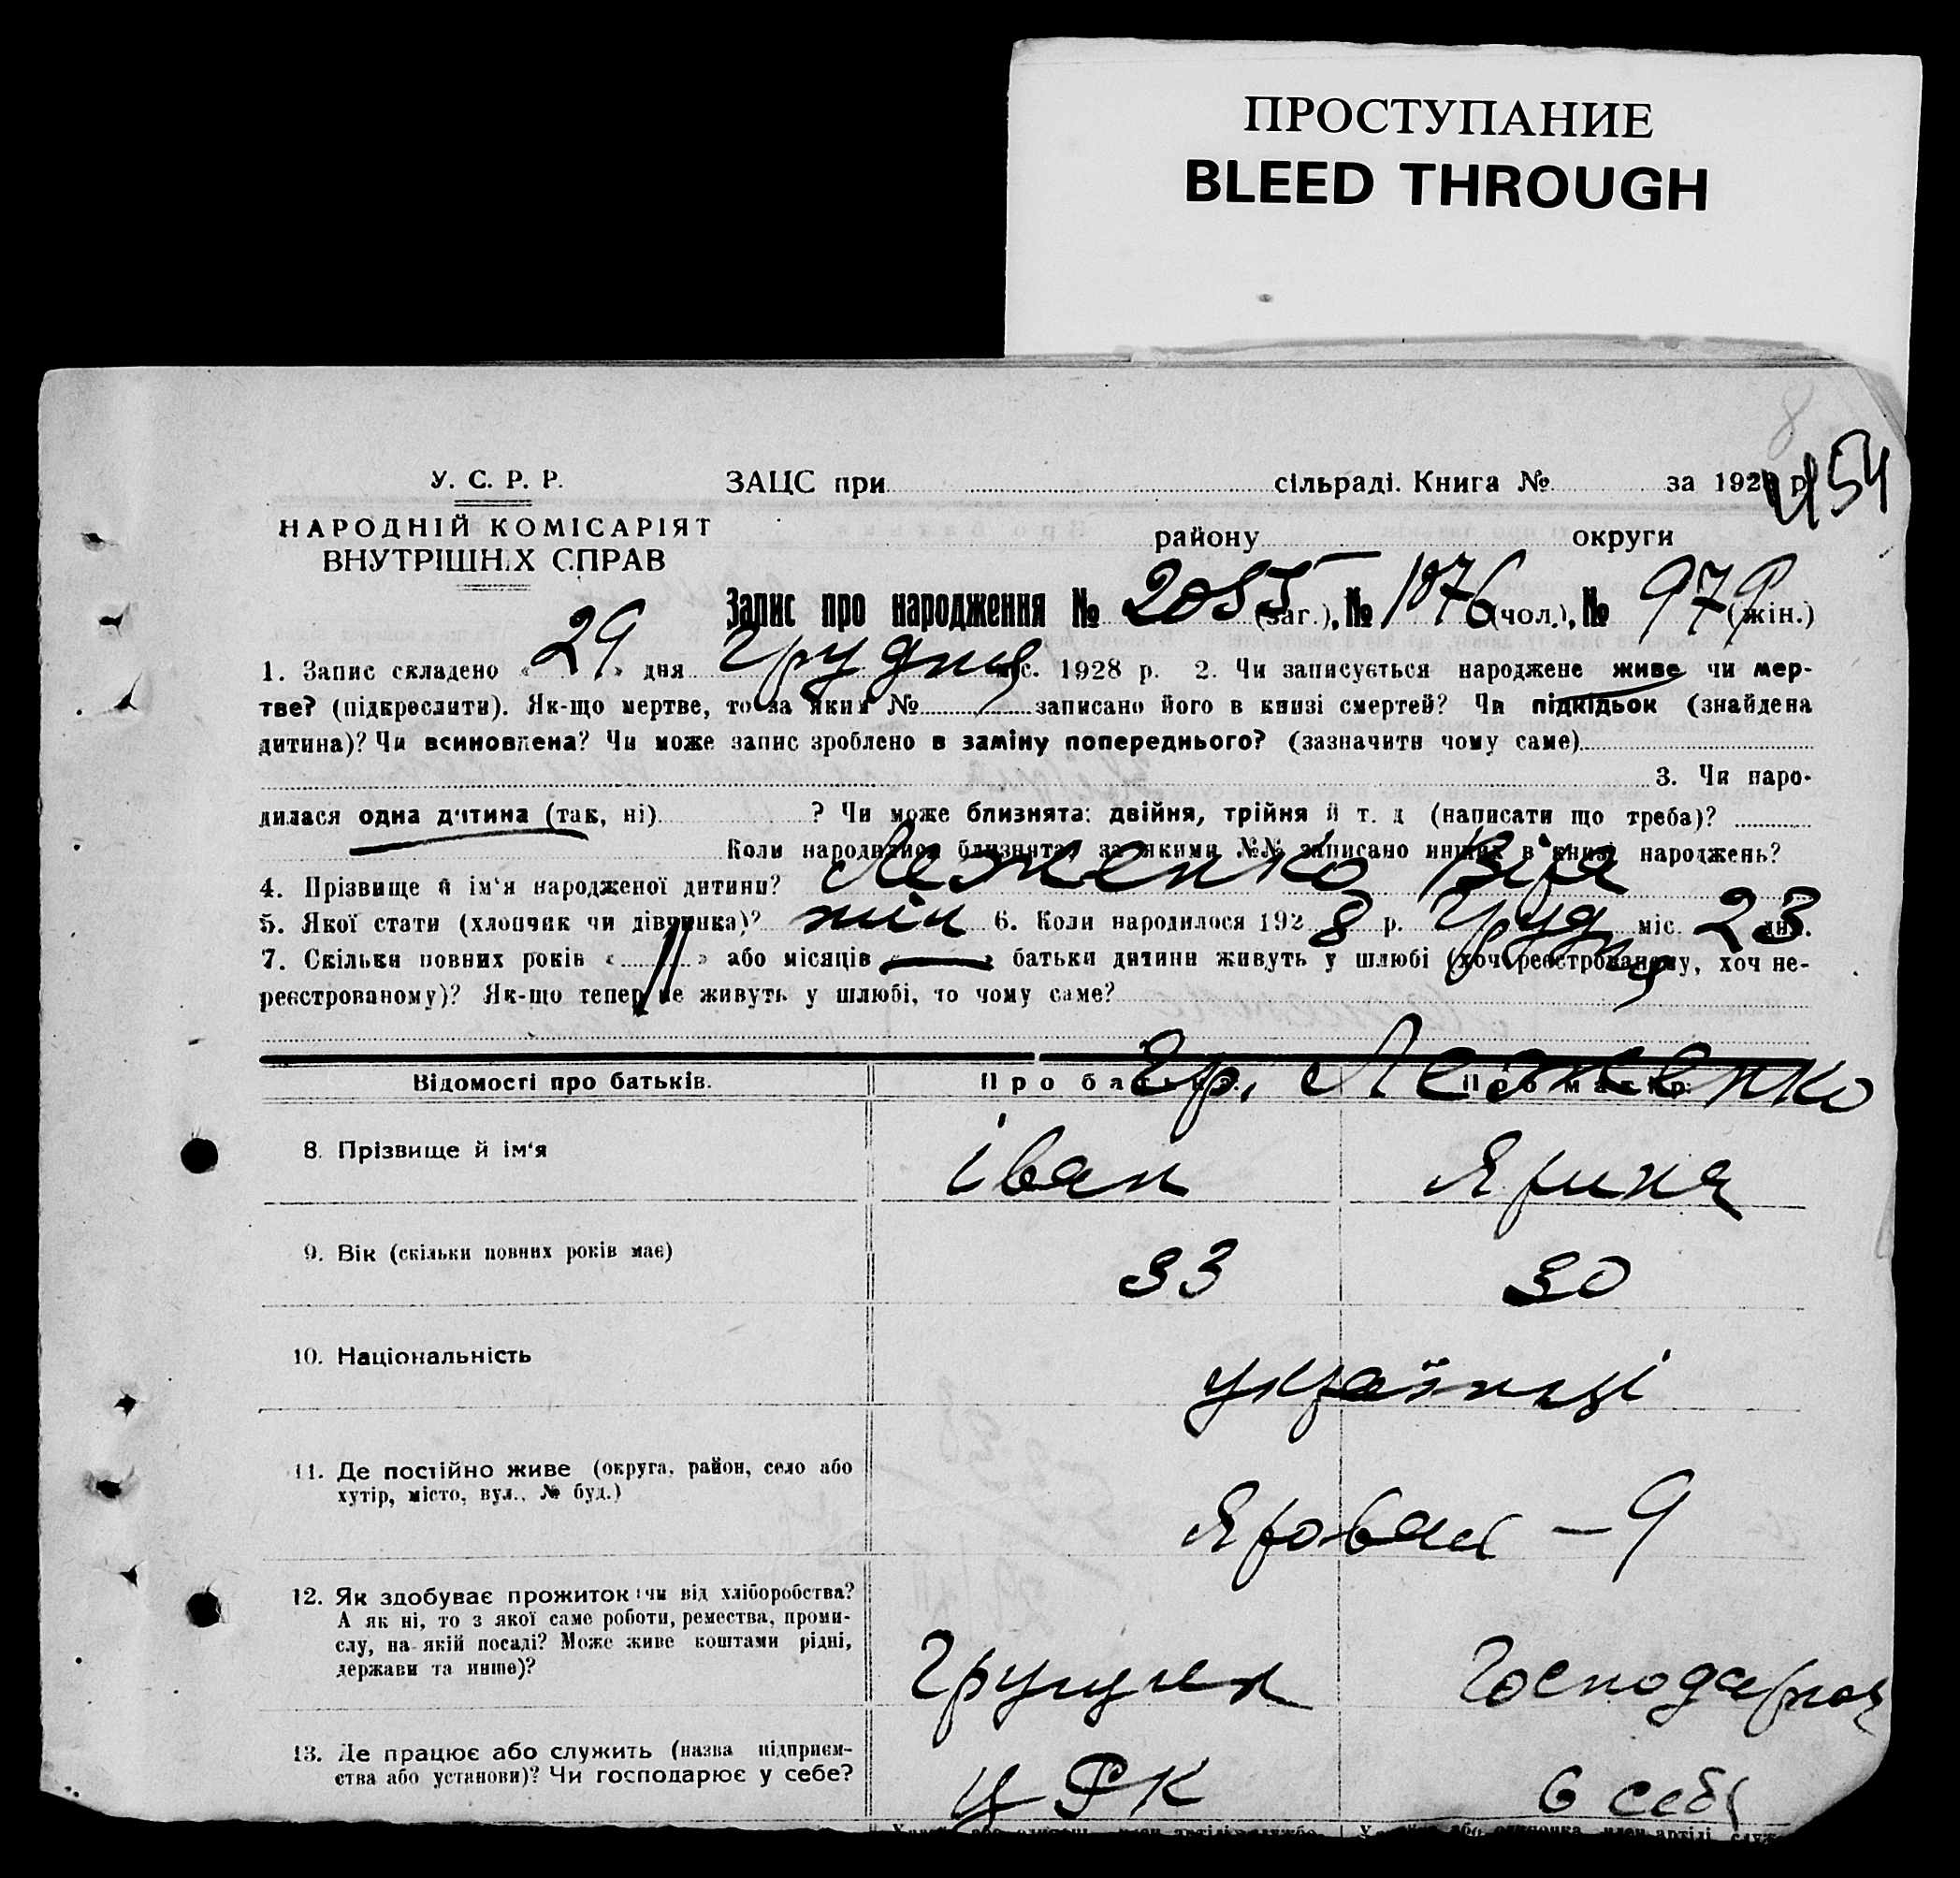 ПРОСТУПАНИЕ
BLEED THROUGH
8
454
У. С. Р. Р.
НАРОДНІЙ КОМІСАРІЯТ
ВНУТРІШНІХ СПРАВ
ЗАЦС при сільраді. Книга № за 192 р.
району округи
Запис про народження № 2055 (заг.), № 1076 (чол.), № 979 (жін.)
1. Запис складено « 29 » дня Грудня міс. 1928 р. 2. Чи записується народжене живе чи мер-
тве? (підкреслити). Як-що мертве, то за яким № записано його в книзі смертей? Чи підкідьок (знайдена
дитина)? Чи всиновлена? Чи може запис зроблено в заміну попереднього? (зазначити чому саме)
3. Чи наро-
дилася одна дитина (так, ні) ? Чи може близнята: двійня, трійня й т. д (написати що треба)?
Коли народилися близнята, за якими №№ записано инших в книзі народжень?
4. Прізвище й ім'я народженої дитини? Леженко Віра
5. Якої стати (хлопчик чи дівчинка)? жін 6. Коли народилося 1928 р. Грудня міс. 23 дня.
7. Скільки повних років « 11 » або місяців « — » батьки дитини живуть у шлюбі (хоч реєстрованому, хоч не-
реєстрованому)? Як-що тепер не живуть у шлюбі, то чому саме?
Відомості про батьків. Про батька. Про матір.
Гр. Леженко
8. Прізвище й ім'я Іван Ярина
9. Вік (скільки повних років має) 33 30
10. Національність українці
11. Де постійно живе (округа, район, село або
хутір, місто, вул., № буд.) – 9
12. Як здобуває прожиток: чи від хліборобства?
А як ні, то з якої саме роботи, ремества, проми-
слу, на якій посаді? Може живе коштами рідні,
держави та инше)?
Грущик Господарка
13. Де працює або служить (назва підприєм-
ства або установи)? Чи господарює у себе?
ЦРК в себе